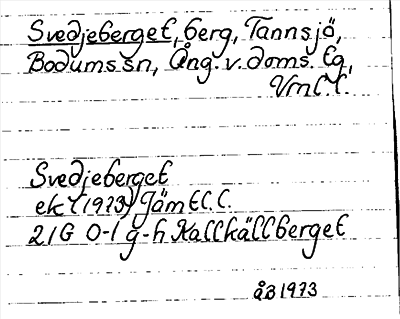 Svedjeberget, berg, Tannsjö,
Bodums sn, Ång. v. doms. tg,
Vrnl. l.
Svedjeberget
ek (1973) Jämtl. l.
21G 0-1 g-h Kallkällberget
ÅB 1973